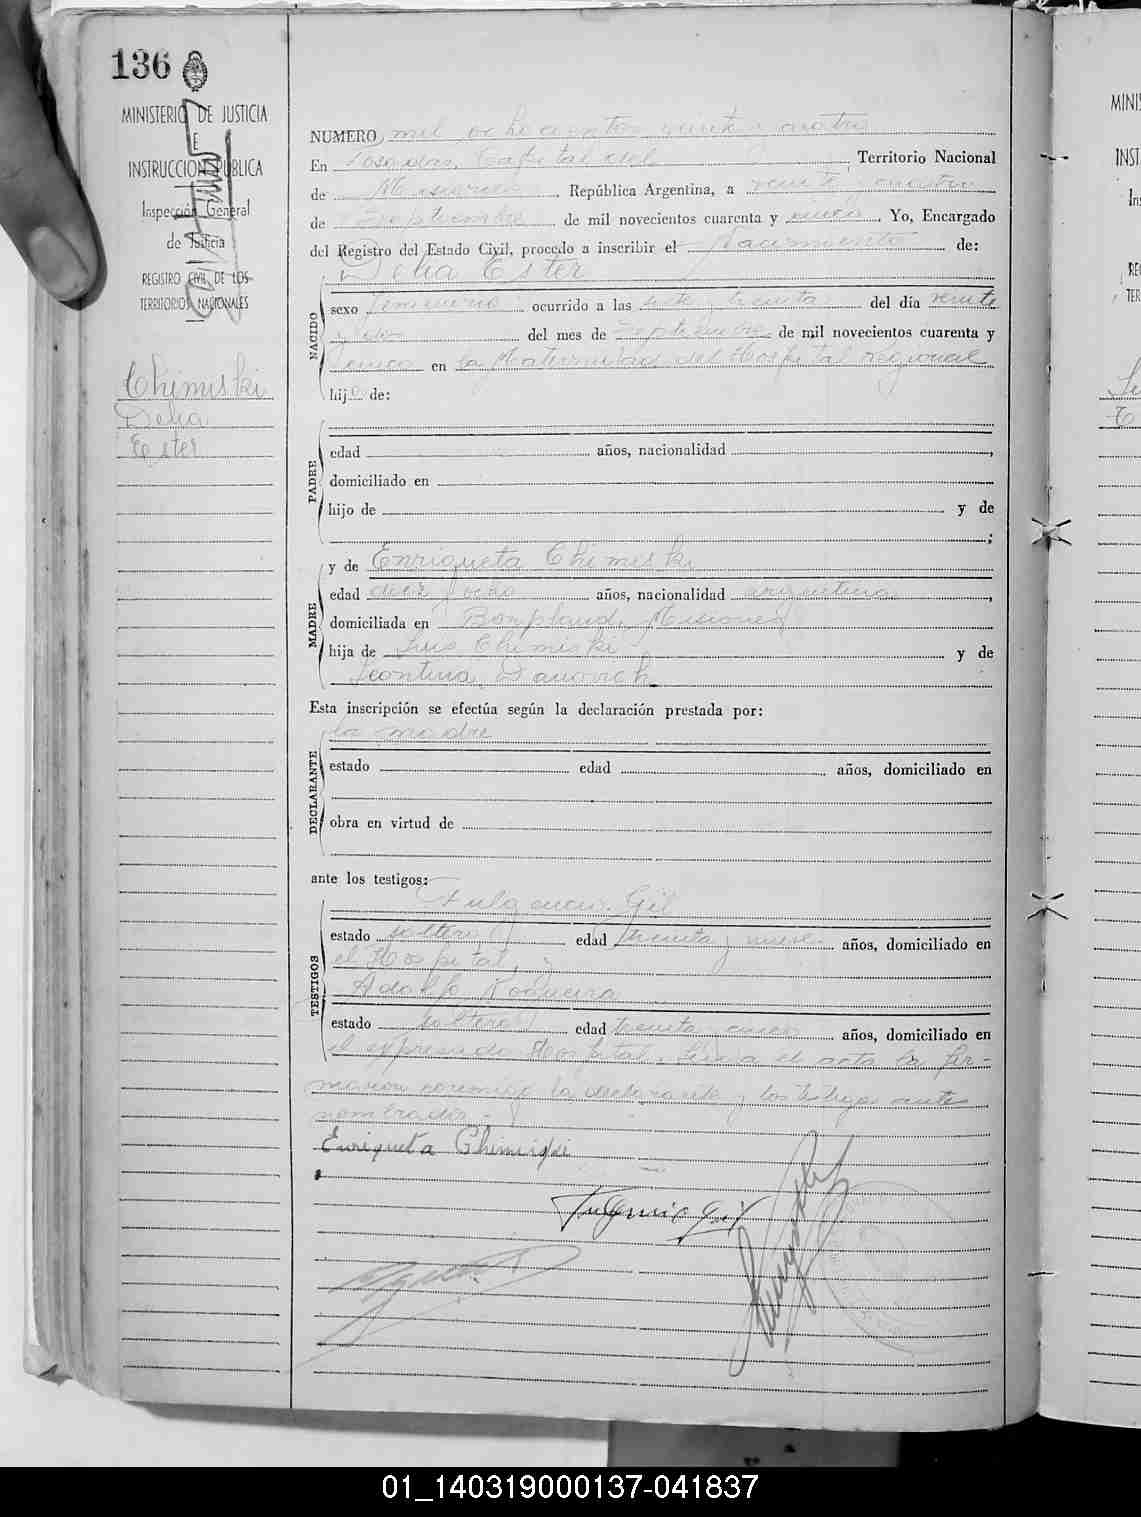 136
MINISTERIO DE JUSTICIA
E
INSTRUCCION PUBLICA
Inspección General
de Justicia
REGISTRO CIVIL DE LOS
TERRITORIOS NACIONALES
Chimiski
Delia
Ester
NUMERO mil ochocientos veinte y cuatro
En Posadas, Capital del Territorio Nacional
de Misiones, República Argentina, a veinte cuatro
de Septiembre de mil novecientos cuarenta y cinco. Yo, Encargado
del Registro del Estado Civil, procedo a inscribir el Nacimiento de:
Delia Ester
NACIDO
sexo femenino ocurrido a las siete y treinta del día veinte
y dos del mes de Septiembre de mil novecientos cuarenta y
cinco en la Maternidad del Hospital regional
hija de:
PADRE
edad años, nacionalidad ,
domiciliado en
hijo de y de
;
MADRE
y de Enriqueta Chimiski
edad diez y ocho años, nacionalidad argentina,
domiciliada en Bonpland, Misiones
hija de Luis Chimiski y de
Leontina
Esta inscripción se efectúa según la declaración prestada por:
la madre
DECLARANTE
estado edad años, domiciliado en
obra en virtud de
ante los testigos:
Fulgencio Gil
TESTIGOS
estado soltero edad treinta y nueve años, domiciliado en
el Hospital, y
Adolfo Nogueira
estado soltero edad treinta y cinco años, domiciliado en
el expresado Hospital. Leida el acta la fir-
maron conmigo la declarante y los testigos ante
nombrados.-
Enriqueta Chimiski
Fulgencio Gil
MINI
INST
In
RE
TER
01_140319000137-041837